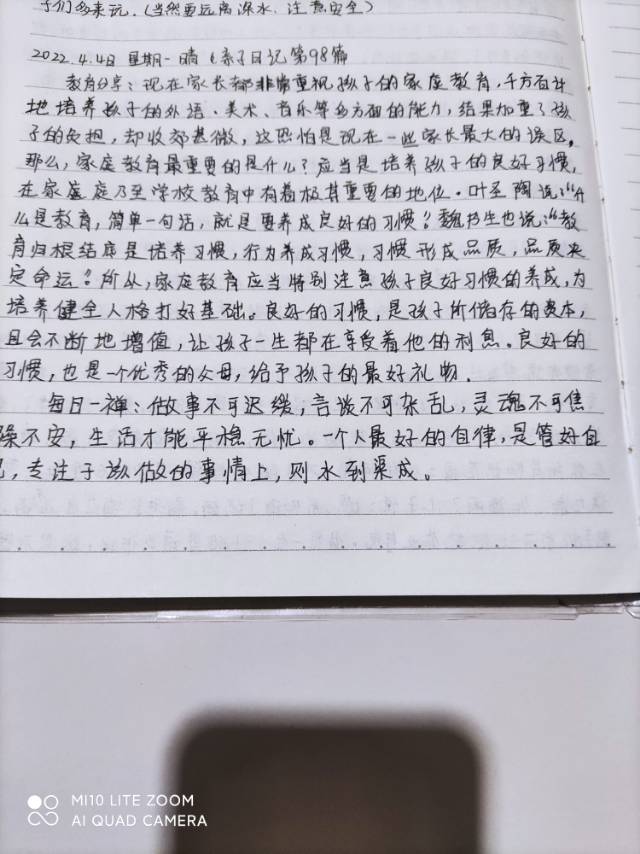 子们多来玩.(当然要远离深水.注意安全)
2022.4.4日 星期一 晴 (亲子日记第98篇
教育分享:现在家长都非常重视孩子的家庭教育,千方百计
地培养孩子的外语、美术、音乐等多方面的能力,结果加重了孩
子的负担,却收效甚微,这恐怕是现在一些家长最大的误区。
那么,家庭教育最重要的是什么?应当是培养孩子的良好习惯,
在家庭庭乃至学校教育中有着极其重要的地位。叶圣陶说:“什
么是教育,简单一句话,就是要养成良好的习惯?魏书生也说:“教
育归根结底是培养习惯,行为养成习惯,习惯形成品质,品质决
定命运?所以,家庭教育应当特别注意孩子良好习惯的养成,为
培养健全人格打好基础。良好的习惯,是孩子所储存的资本,
且会不断地增值,让孩子一生都在享受着他的利息。良好的
习惯,也是一个优秀的父母,给予孩子的最好礼物.
每日一禅:做事不可迟缓,言谈不可杂乱,灵魂不可焦
躁不安,生活才能平稳无忧。一个人最好的自律,是管好自
己,专注于该做的事情上,则水到渠成。
MI 10 LITE ZOOM
AI QUAD CAMERA